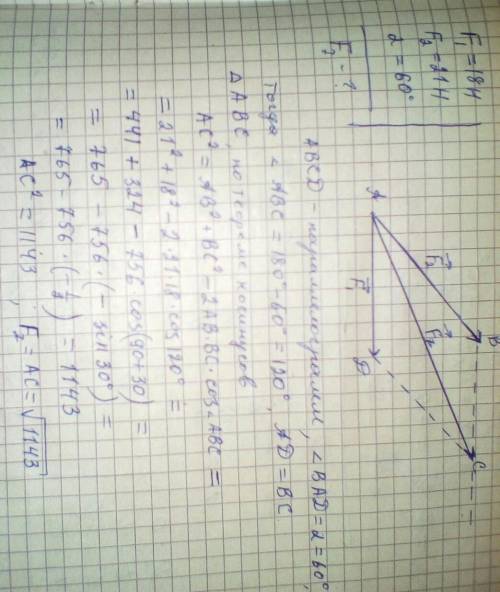 F₁ = 18H
F₂ = 21H
α = 60°
F₂ - ?
A
B
C
D
F₂
F₂
F₁
ABCD - параллелограмм, ∠BAD = α = 60°,
тогда ∠ABC = 180° - 60° = 120°, AD = BC
△ABC, по теореме косинусов
AC² = AB² + BC² - 2AB·BC·cos∠ABC =
= 21² + 18² - 2·21·18 cos 120° =
= 441 + 324 - 756 cos(90+30) =
= 765 - 756·(-sin 30°) =
= 765 - 756·(-½) = 1143
AC² = 1143, F₂ = AC = √1143